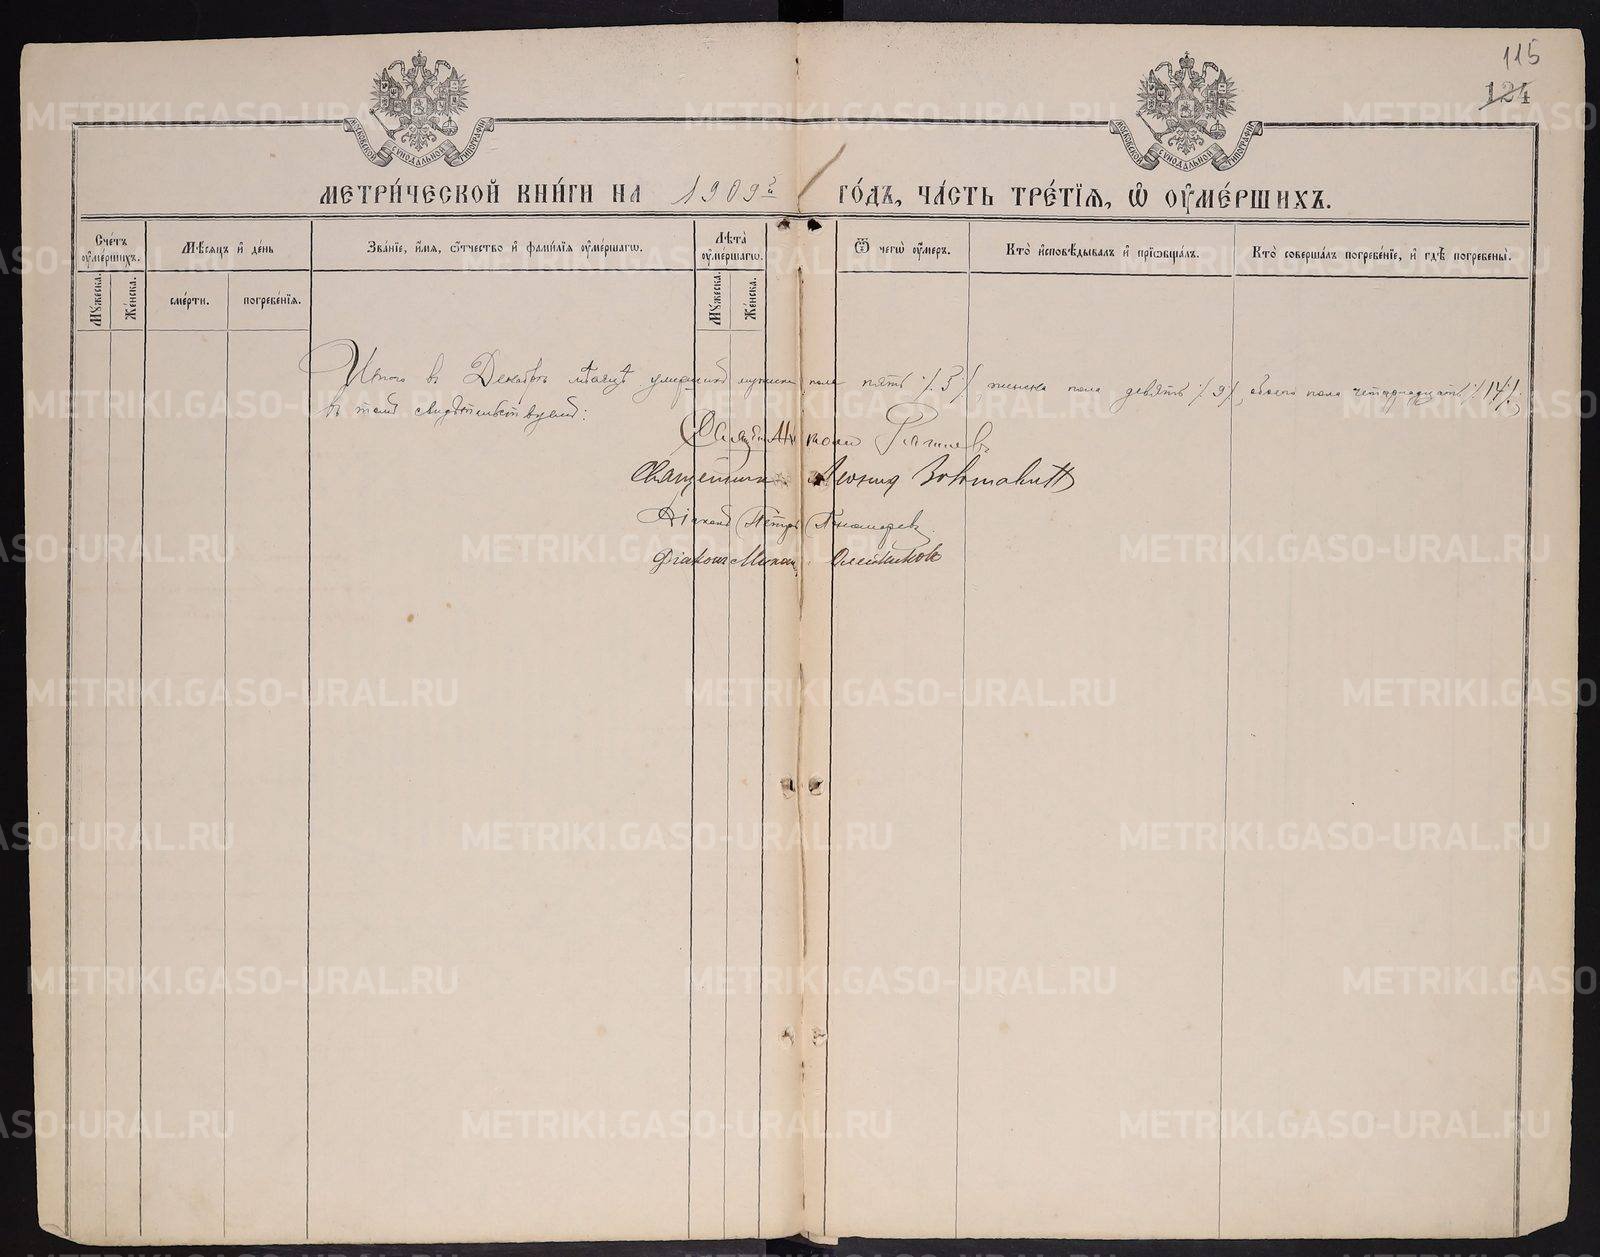 115
124
МОСКОВСКОЙ СѴНОДАЛЬНОЙ ТИПОГРАФІИ
МОСКОВСКОЙ СѴНОДАЛЬНОЙ ТИПОГРАФІИ
МЕТРИ́ЧЕСКОЙ КНИ́ГИ НА 1909й ГО́ДЪ, ЧА́СТЬ ТРЕ́ТІѦ, Ѡ ОУ҆МЕ́РШИХЪ.
Сче́тъ оу҆ме́ршихъ.
Мѣ́сѧцъ и҆ де́нь
Зва́нїе, и҆́мѧ, ѻ҆́тчество и҆ фамил́їѧ оу҆ме́ршагѡ.
Лѣ́та оу҆ме́ршагѡ.
Ѿ чегѡ̀ оу҆́меръ.
Кто̀ и҆сповѣ́дывалъ и҆ прїѡбща́лъ.
Кто̀ соверша́лъ погребе́нїе, и҆ гдѣ̀ погребены̀.
Мꙋ́жеска.
Же́нска.
сме́рти.
погребе́нїѧ.
Мꙋ́жеска.
Же́нска.
Итого въ Декабрѣ мѣсяцѣ умершихъ мужска пола пять ./.5./. женска пола девять ./.9./. обоего пола четырнадцать ./.14./.
въ томъ свидѣтельствуемъ:
Священникъ
Діаконъ Петръ Пономаревъ
Діаконъ Михаил Олесниковъ
METRIKI.GASO-URAL.RU